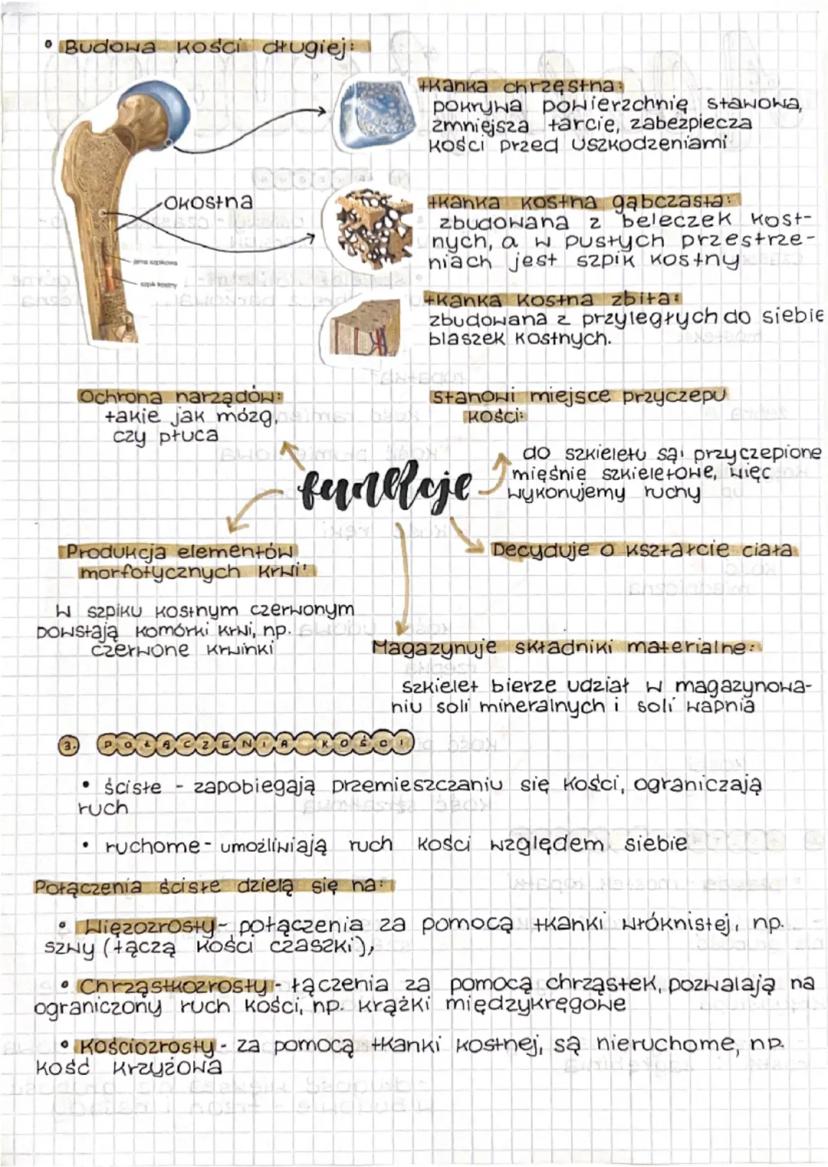 • Budowa kości długiej:
tkanka chrzęstna:
pokrywa powierzchnię stawową,
zmniejsza tarcie, zabezpiecza
kości przed uszkodzeniami
okostna
jama szpikowa
szpik kostny
tkanka kostna gąbczasta:
zbudowana z beleczek kost-
nych, a w pustych przestrze-
niach jest szpik kostny
tkanka kostna zbita:
zbudowana z przyległych do siebie
blaszek kostnych.
Ochrona narządów:
takie jak mózg,
czy płuca
stanowi miejsce przyczepu
kości:
do szkieletu są przyczepione
mięśnie szkieletowe, więc
wykonujemy ruchy
funkcje
Produkcja elementów
morfotycznych krwi:
w szpiku kostnym czerwonym
powstają komórki krwi, np.
czerwone krwinki
Decyduje o kształcie ciała
Magazynuje składniki materialne:
szkielet bierze udział w magazynowa-
niu soli mineralnych i soli wapnia
3. POŁĄCZENIA KOŚCI
• ścisłe - zapobiegają przemieszczaniu się kości, ograniczają
ruch
• ruchome - umożliwiają ruch kości względem siebie
Połączenia ścisłe dzielą się na:
• Więzozrosty - połączenia za pomocą tkanki włóknistej, np.
szwy (łączą kości czaszki),
• Chrząstkozrosty - łączenia za pomocą chrząstek, pozwalają na
ograniczony ruch kości, np. krążki międzykręgowe
• Kościozrosty - za pomocą tkanki kostnej, są nieruchome, np.
kość krzyżowa